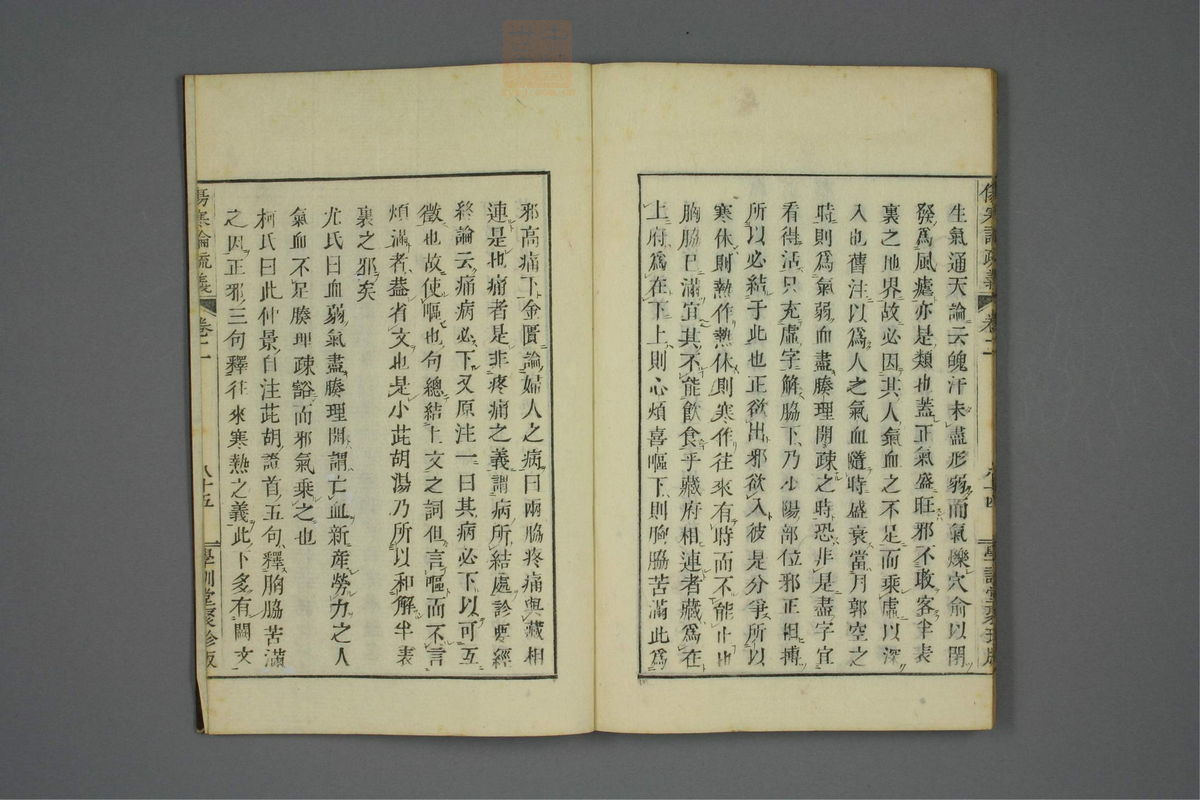 生氣通天論云魄汗未盡形弱而氣爍穴兪以閉
發爲風瘧亦是類也蓋正氣盛旺邪不敢客半表
裏之地界故必因其人氣血之不足而乘虛以深
入也舊注以爲人之氣血隨時盛衰當月郭空之
時則爲氣弱血盡腠理開疎之時恐非是盡字宜
看得活只充虛字解脇下乃少陽部位邪正相搏
所以必結于此也正欲出邪欲入彼是分爭所以
寒休則熱作熱休則寒作往來有時而不能止也
胸脇已滿宜其不能飲食乎藏府相連者藏爲在
上府爲在下上則心煩喜嘔下則胸脇苦滿此爲
邪高痛下金匱論婦人之病曰兩脇疼痛與藏相
連是也痛者是非疼痛之義謂病所結處診要經
終論云痛病必下又原注一曰其病必下以可互
徵也故使嘔也句總結上文之詞但言嘔而不言
煩滿者蓋省文也是小茈胡湯乃所以和解半表
裏之邪矣
尤氏曰血弱氣盡腠理開謂亡血新產勞力之人
氣血不足腠理疎豁而邪氣乘之也
柯氏曰此仲景自注茈胡證首五句釋胸脇苦滿
之因正邪三句釋往來寒熱之義此下多有闕文
傷寒論疏義 卷二 八十五 學訓堂聚珍版